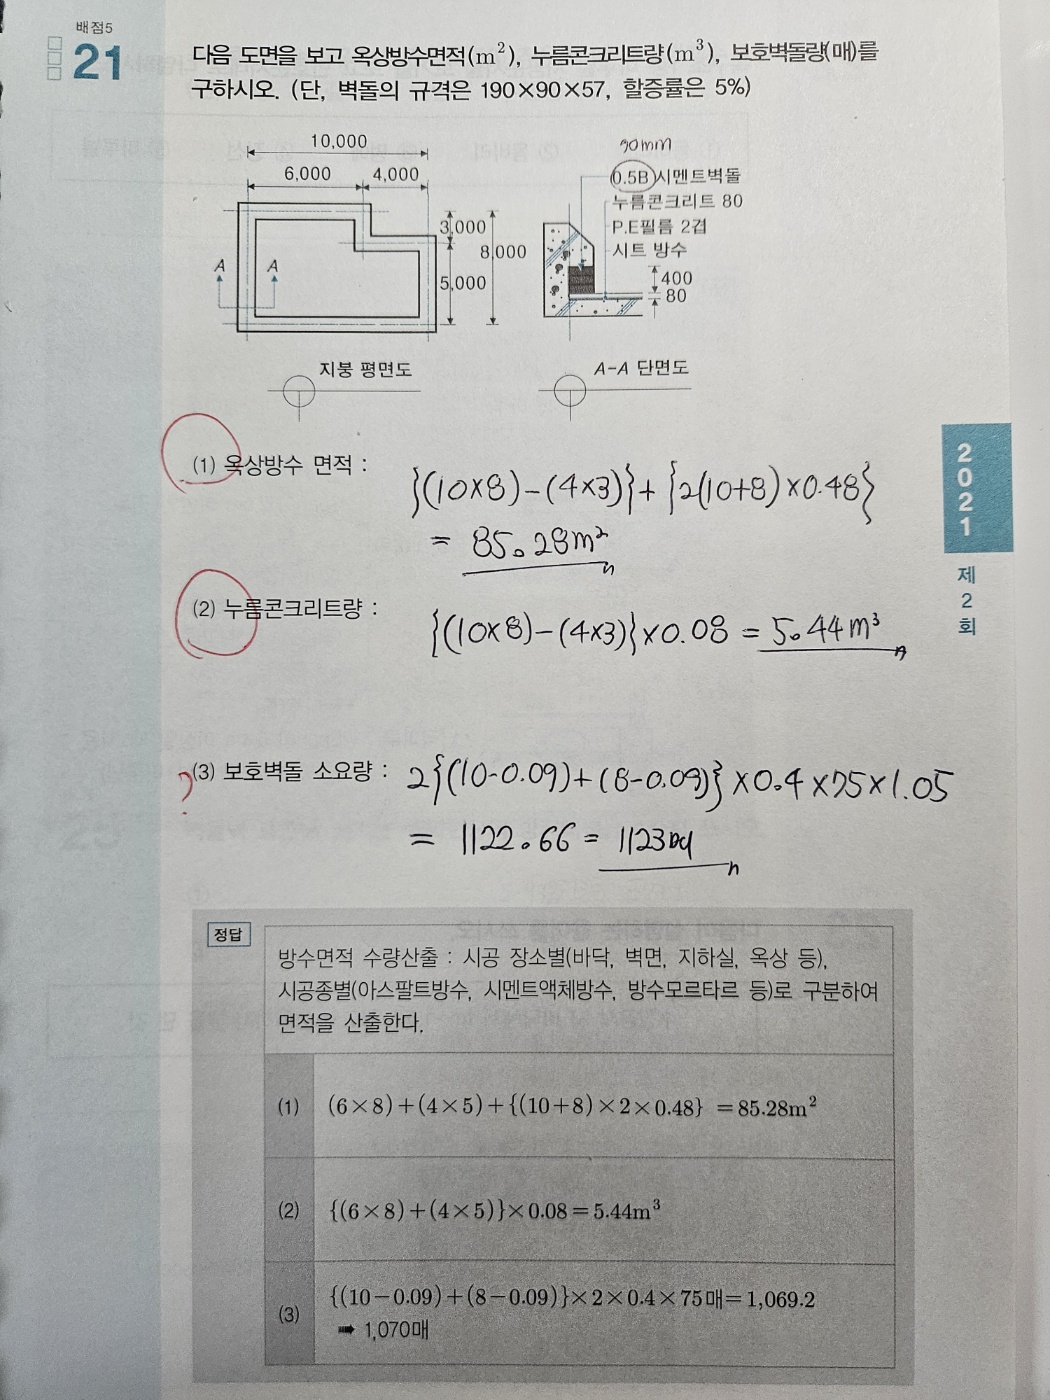 배점5
21
다음 도면을 보고 옥상방수면적(m²), 누름콘크리트량(m³), 보호벽돌량(매)를
구하시오. (단, 벽돌의 규격은 190×90×57, 할증률은 5%)
10,000
6,000 4,000
3,000
8,000
5,000
A A
지붕 평면도
90mm
0.5B 시멘트벽돌
누름콘크리트 80
P.E필름 2겹
시트 방수
400
80
A-A 단면도
(1) 옥상방수 면적 :
{(10×8)-(4×3)}+{2(10+8)×0.48}
= 85.28m²
(2) 누름콘크리트량 :
{(10×8)-(4×3)}×0.08 = 5.44m³
?
(3) 보호벽돌 소요량 :
2{(10-0.09)+(8-0.09)}×0.4×75×1.05
= 1122.66 = 1123매
2021
제2회
정답
방수면적 수량산출 : 시공 장소별(바닥, 벽면, 지하실, 옥상 등),
시공종별(아스팔트방수, 시멘트액체방수, 방수모르타르 등)로 구분하여
면적을 산출한다.
(1) (6×8)+(4×5)+{(10+8)×2×0.48} =85.28m²
(2) {(6×8)+(4×5)}×0.08=5.44m³
(3) {(10-0.09)+(8-0.09)}×2×0.4×75매=1,069.2
➠ 1,070매